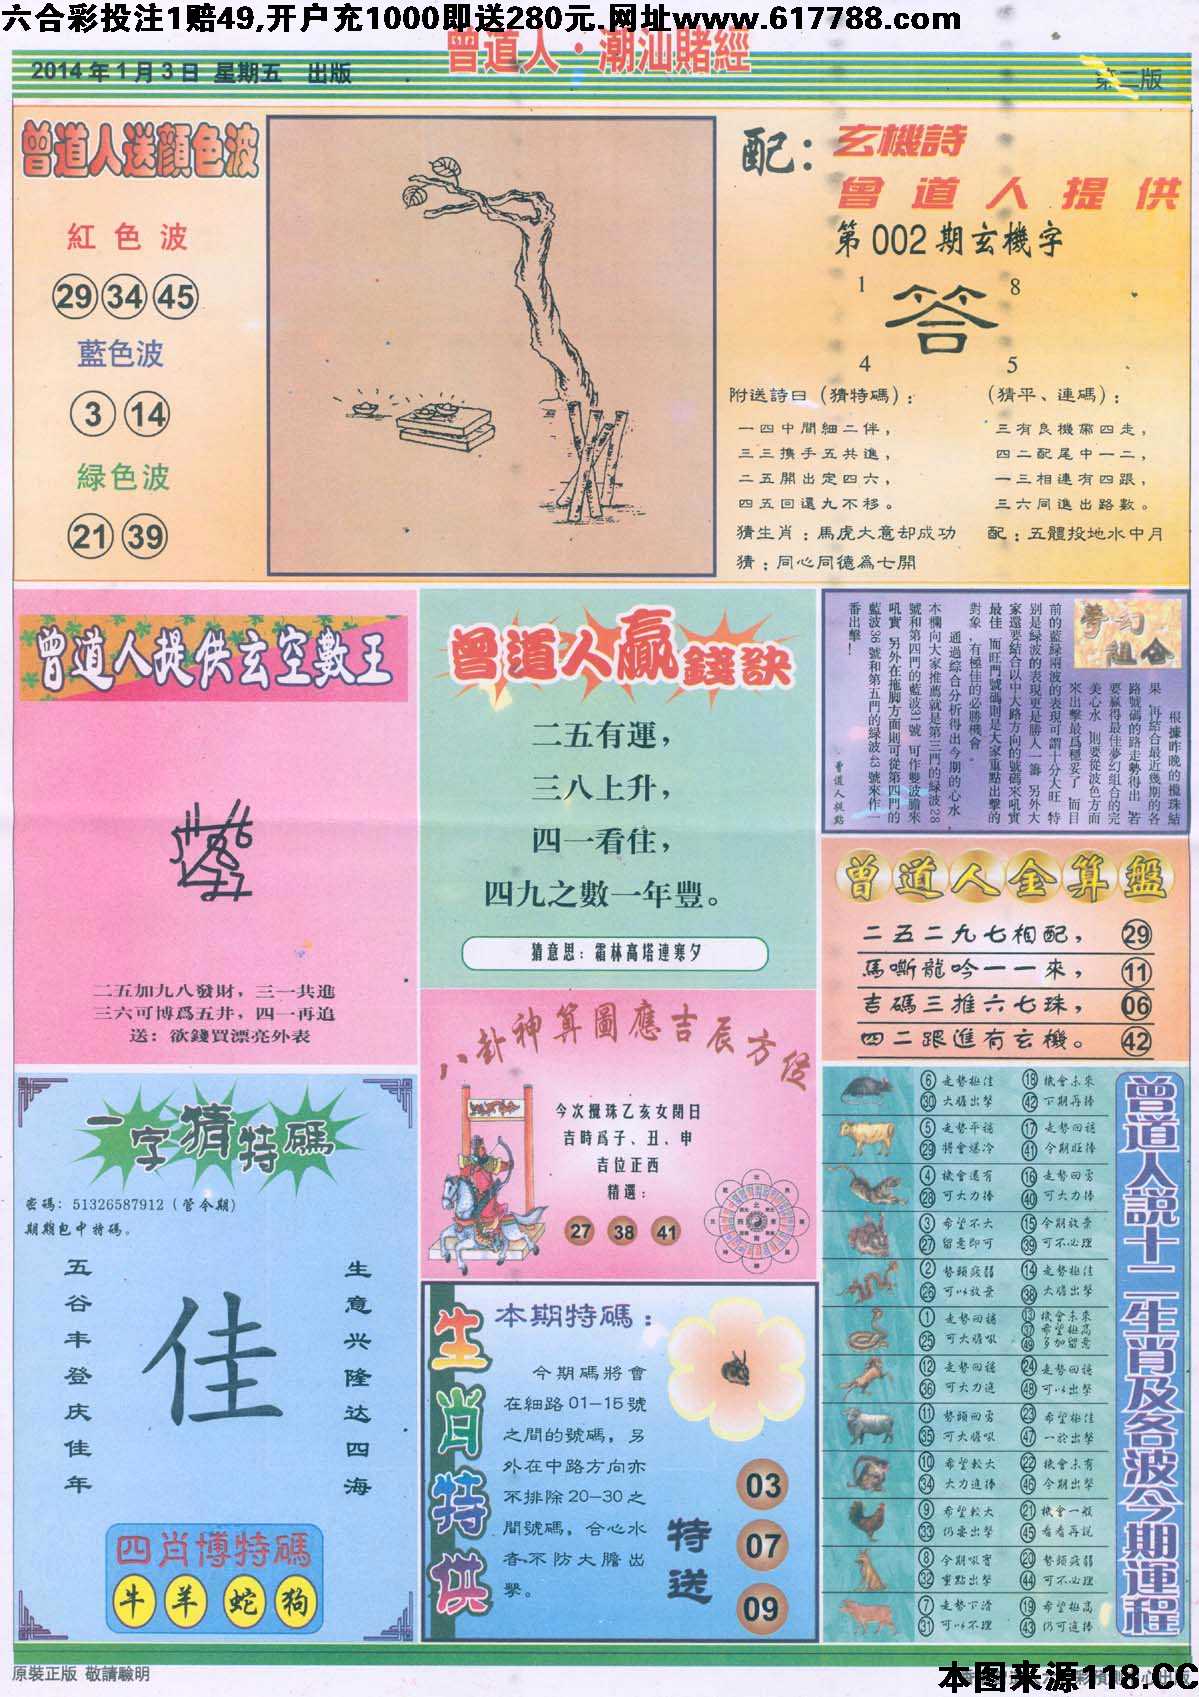 六合彩投注1赔49,开户充1000即送280元.网址www.617788.com
曾道人·潮汕賭經
2014年1月3日 星期五 出版
第二版
曾道人送顏色波
紅色波
29 34 45
藍色波
3 14
緑色波
21 39
配：玄機詩
曾道人提供
第002期玄機字
1 8
答
4 5
附送詩曰（猜特碼）：
一四中間細二伴，
三三擕手五共進，
二五開出定四六，
四五回還九不移。
猜生肖：馬虎大意却成功
猜：同心同德爲七開
（猜平、連碼）：
三有良機常四走，
四二配尾中一二，
一三相連有四跟，
三六同進出路數。
配：五體投地水中月
曾道人提供玄空數王
二五加九八發財，三一共進
三六可博爲五井，四一再追
送：欲錢買漂亮外表
曾道人贏錢訣
二五有運，
三八上升，
四一看住，
四九之數一年豐。
猜意思：霜林高塔連寒夕
夢幻組合
根據昨晚的攪珠結
果，再結合最近幾期的各
路號碼的路走勢得出，若
要贏得最佳夢幻組合的完
美心水，則要從波色方面
來出擊最爲穩妥了，而目
前的藍緑兩波的表現可謂十分大旺，特
別是緑波的表現更是勝人一籌，另外大
家還要結合以中大路方向的號碼來吼實
最佳，而旺門號碼則是大家重點出擊的
對象，有極佳的必勝機會。
通過綜合分析得出今期的心水
本欄向大家推薦就是第三門的緑波28
號和第四門的藍波31號，可作雙波膽來
吼實，另外在拖脚方面則可從第四門的
藍波36號和第五門的緑波43號來作一
番出擊！
曾道人統點
曾道人金算盤
二五二九七相配， 29
馬嘶龍吟一一來， 11
吉碼三推六七珠， 06
四二跟進有玄機。 42
八卦神算圖應吉辰方從
今次攪珠乙亥女閉日
吉時爲子、丑、申
吉位正西
精選：
27 38 41
一字猜特碼
密碼：51326587912（管今期）
期期包中特碼。
五谷丰登庆佳年
佳
生意兴隆达四海
四肖博特碼
牛 羊 蛇 狗
生肖特供
本期特碼：
今期碼將會
在細路01-15號
之間的號碼，另
外在中路方向亦
不排除20-30之
間號碼，合心水
者不防大膽出
擊。
特送
03
07
09
曾道人説十二生肖及各波今期運程
6 走勢極佳 18 機會未來
30 大膽出擊 42 下期再捧
5 走勢平穩 17 走勢回穩
29 將會爆冷 41 今期旺捧
4 機會還有 16 走勢回勇
28 可大力捧 40 可大力捧
3 希望不大 15 今期放棄
27 留意即可 39 可不必理
2 勢頭疲弱 14 走勢極佳
26 可以放棄 38 大膽出擊
1 走勢回穩 13 機會未來
25 可大膽吼 37 希望極高
49 多加留意
12 走勢回穩 24 走勢回穩
36 可大力進 48 可以出擊
11 勢頭回勇 23 希望極佳
35 可大膽吼 47 一於出擊
10 希望較大 22 機會未有
34 大力進捧 46 今期出擊
9 希望較大 21 機會一般
33 仍要出擊 45 看看再說
8 今期吼實 20 勢頭疲弱
32 重點出擊 44 可不必理
7 走勢下滑 19 希望極高
31 可以不理 43 仍可進捧
原裝正版 敬請驗明
本图来源118.CC